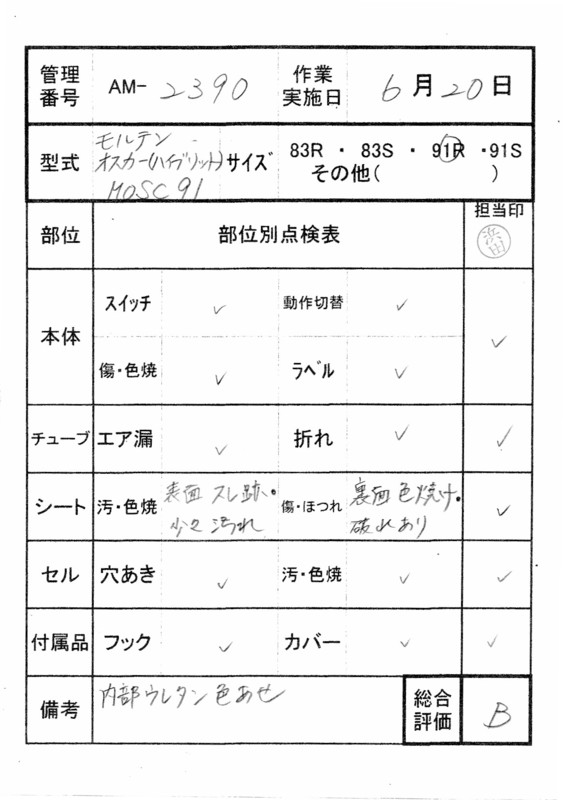 管理番号 AM- 2390 作業実施日 6月20日
型式 モルテン オスカー(ハイブリット) MOSC91 サイズ 83R ・ 83S ・ 91R ・91S
その他( )
部位 部位別点検表 担当印 浜田
本体 スイッチ ✓ 動作切替 ✓ ✓
傷・色焼 ✓ ラベル ✓
チューブ エア漏 ✓ 折れ ✓ ✓
シート 汚・色焼 表面スレ跡・少々汚れ 傷・ほつれ 裏面色焼け・破れあり ✓
セル 穴あき ✓ 汚・色焼 ✓ ✓
付属品 フック ✓ カバー ✓ ✓
備考 内部ウレタン色あせ 総合評価 B